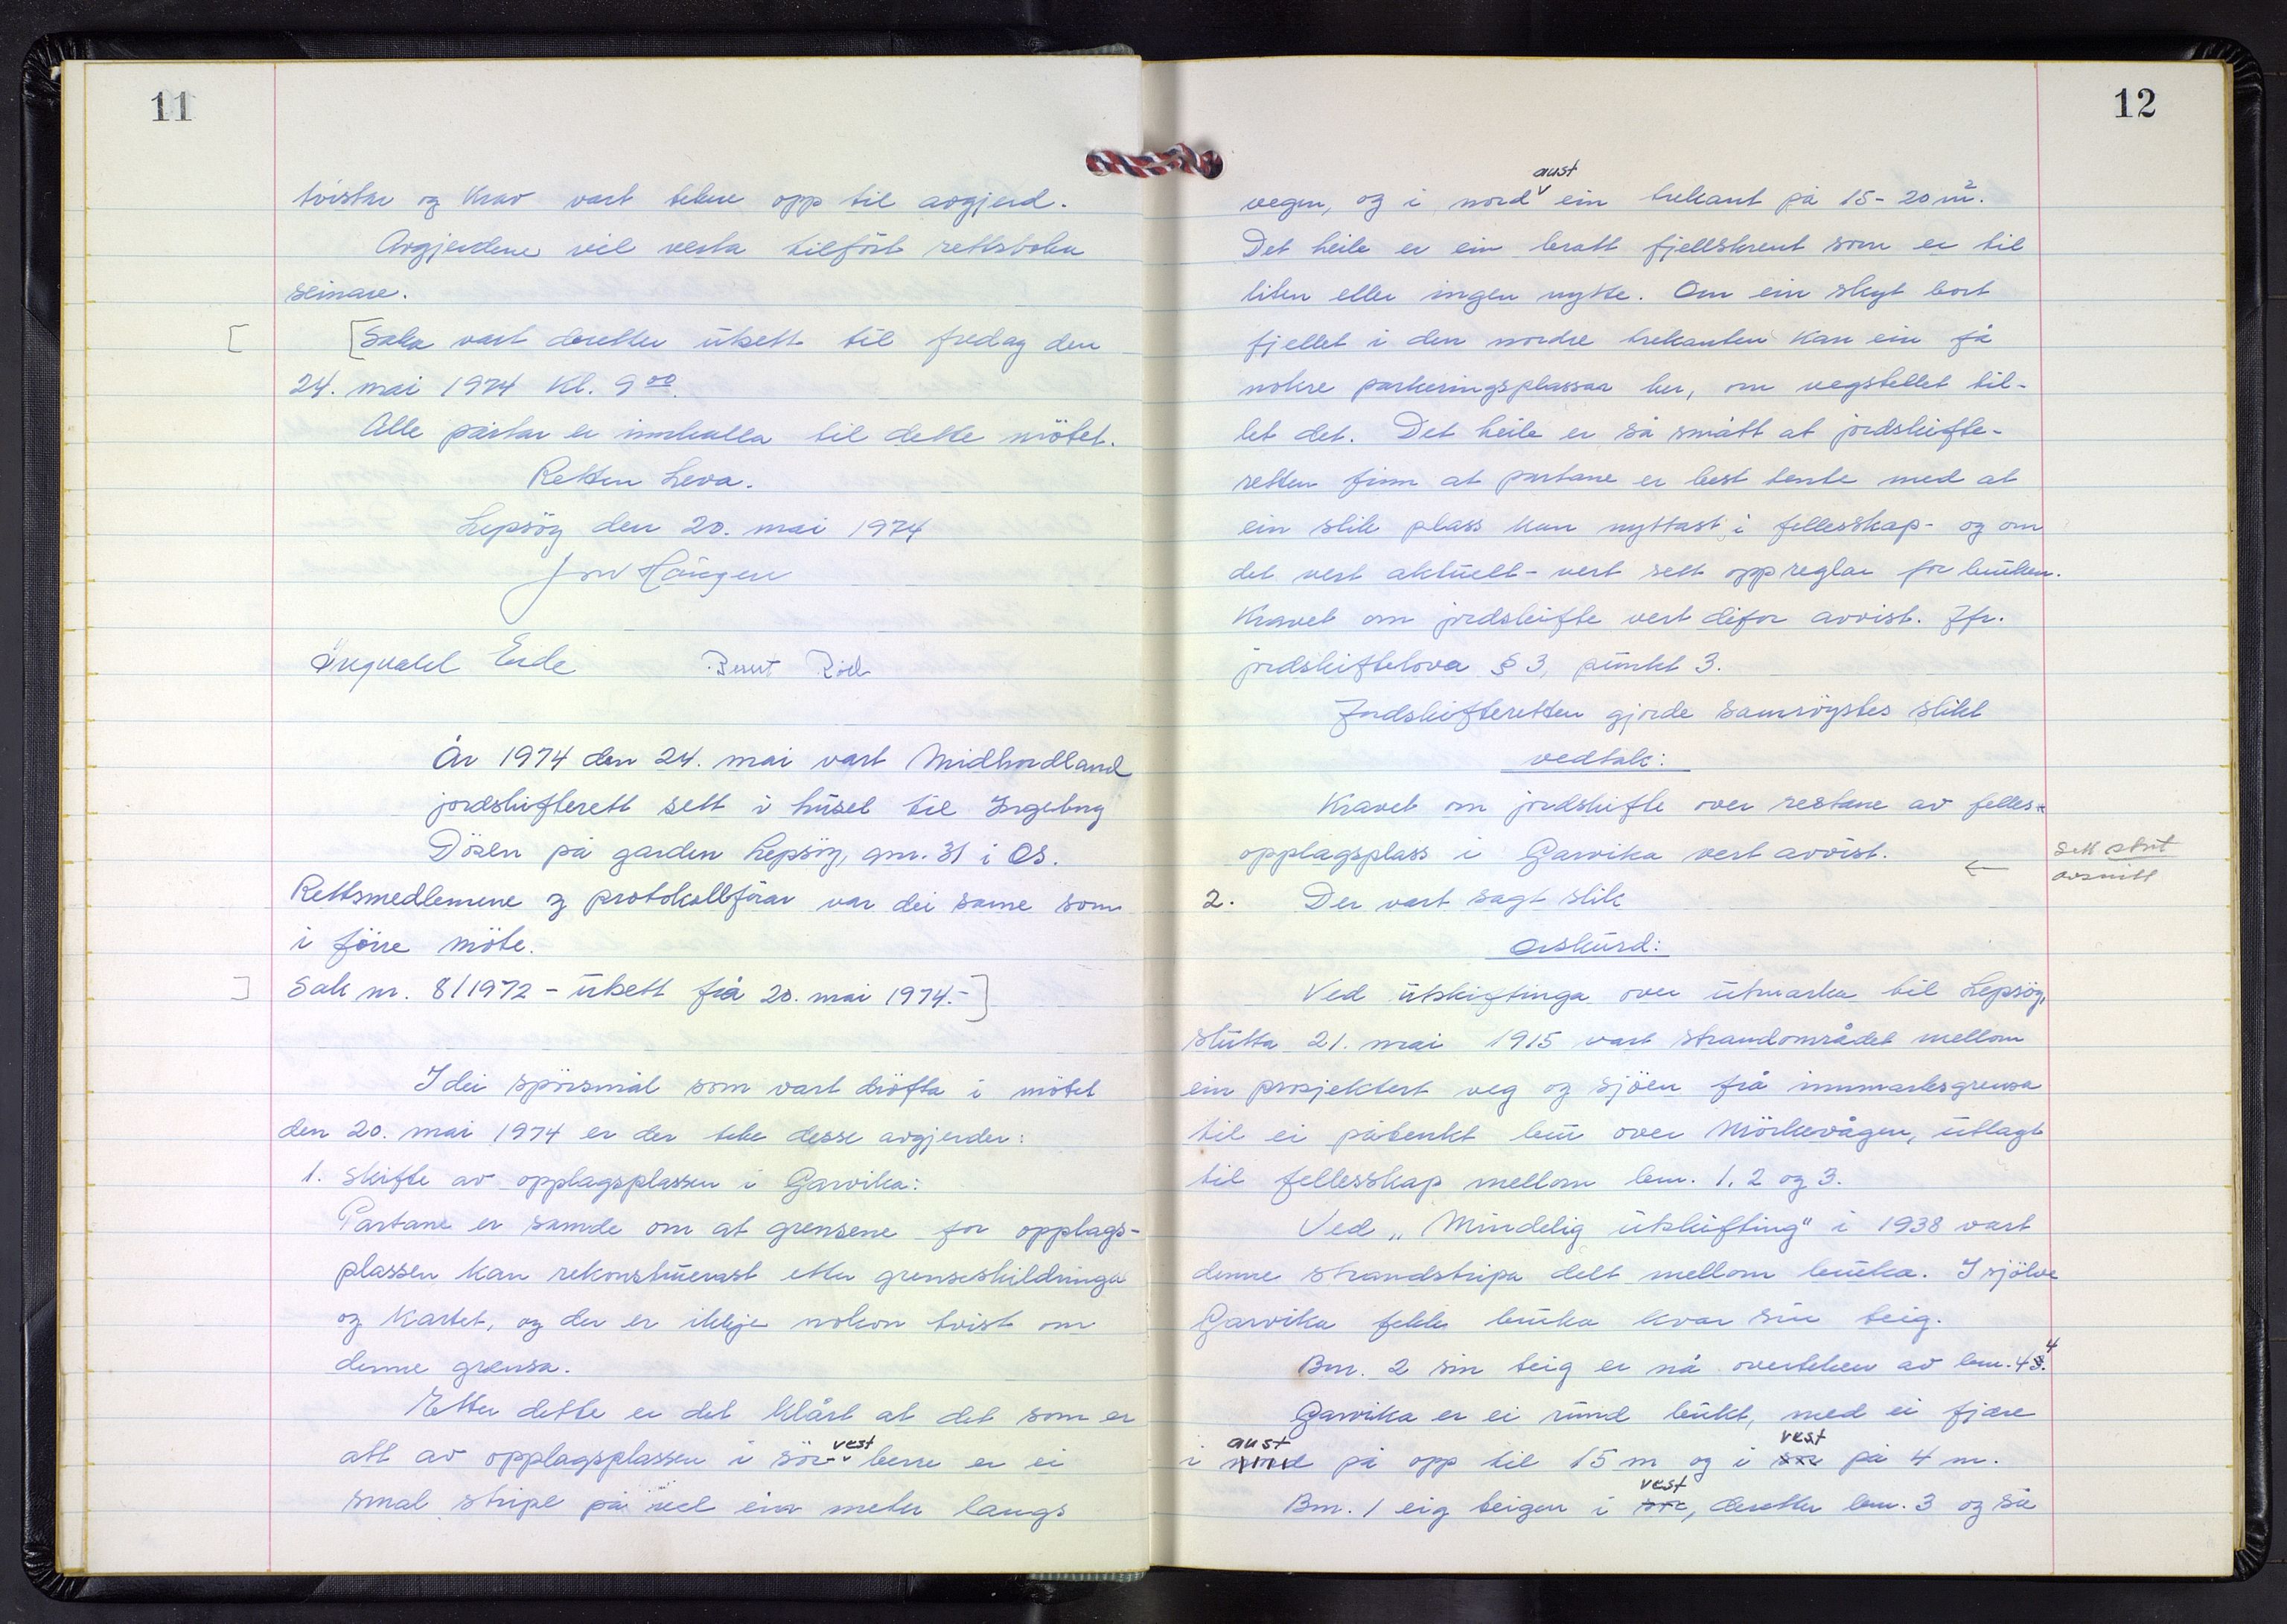 11
tvistar og krav vart tekne opp til avgjerd.
Avgjerdene vil verta tilført rettsboka
seinare.
[ [Saka vart deretter utsett til fredag den
24. mai 1974 kl. 9 00.
Alle partar er innkalla til dette møtet.
Retten heva.
Lepsøy den 20. mai 1974
Jon Haugen
Ingvald Eide Berent Röd
År 1974 den 24. mai vart Midhordland
jordskifterett sett i huset til Ingeborg
Døsen på garden Lepsøy, gnr. 31 i Os.
Rettsmedlemene og protokollførar var dei same som
i førre møte.
] Sak nr. 8/1972 - utsett frå 20. mai 1974.-]
I dei spørsmål som vart drøfta i møtet
den 20. mai 1974 er der teke desse avgjerder:
1. Skifte av opplagsplassen i Garvika:
Partane er samde om at grensene for opplags-
plassen kan rekonstruerast etter grenseskildringa
og kartet, og der er ikkje nokon tvist om
denne grensa.
Etter dette er det klårt at det som er
vest
att av opplagsplassen i sør- berre er ei
smal stripe på vel ein meter langs
12
aust
vegen, og i nord ein trekant på 15-20 m².
Det heile er ein bratt fjellskrent som er til
liten eller ingen nytte. Om ein skyt bort
fjellet i den nordre trekanten kan ein få
nokre parkeringsplassar her, om vegstellet til-
let det. Det heile er så smått at jordskifte-
retten finn at partane er best tente med at
ein slik plass kan nyttast i fellesskap - og om
det vert aktuelt - vert sett opp reglar for bruken.
Kravet om jordskifte vert difor avvist. Jfr.
jordskiftelova § 3, punkt 3.
Jordskifteretten gjorde samrøystes slikt
vedtak:
Kravet om jordskifte over restane av felles-
opplagsplass i Garvika vert avvist.
← Sett strut avsnitt
2. Der vart sagt slik
orskurd:
Ved utskiftinga over utmarka til Lepsøy,
slutta 21. mai 1915 vart strandområdet mellom
ein prosjektert veg og sjøen frå innmarksgrensa
til ei påtenkt bru over Mørkevågen, utlagt
til fellesskap mellom bnr. 1, 2 og 3.
Ved „Mindelig utskifting" i 1938 vart
denne strandstripa delt mellom bruka. I sjølve
Garvika fekk bruka kvar sin teig.
Bnr. 2 sin teig er nå overteken av bnr. 43. 4
Garvika er ei rund bukt, med ei fjære
aust vest
i nord på opp til 15 m og i sør på 4 m.
vest
Bnr. 1 eig teigen i sør, deretter bnr. 3 og så